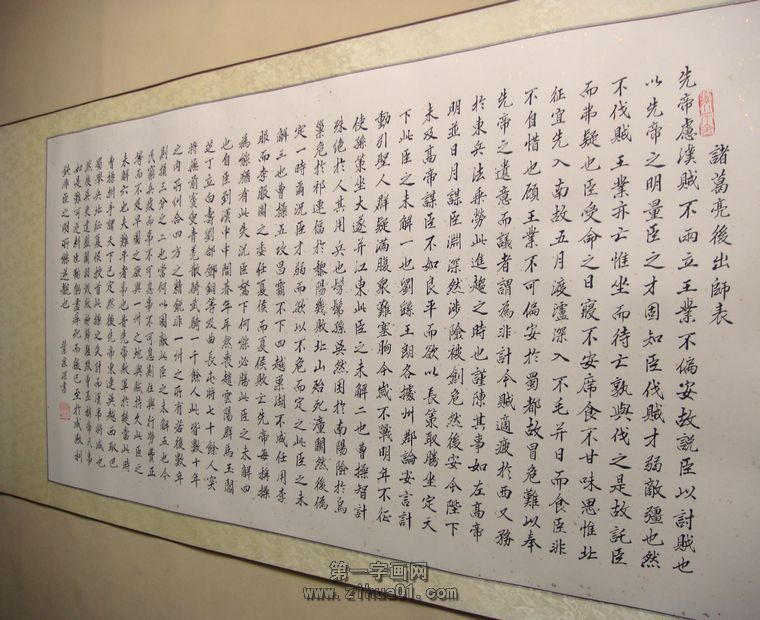 諸葛亮後出師表
先帝慮漢賊不兩立王業不偏安故説臣以討賊也
以先帝之明量臣之才固知臣伐賊才弱敵彊也然
不伐賊王業亦亡惟坐而待亡孰與伐之是故託臣
而弗疑也臣受命之日寢不安席食不甘味思惟北
征宜先入南故五月渡瀘深入不毛并日而食臣非
不自惜也顧王業不可偏安於蜀都故冒危難以奉
先帝之遺意而議者謂為非計今賊適疲於西又務
於東兵法乘勞此進趨之時也謹陳其事如左高帝
明並日月謀臣淵深然涉險被創危然後安今陛下
未及高帝謀臣不如良平而欲以長策取勝坐定天
下此臣之未解一也劉繇王朗各據州郡論安言計
動引聖人群疑滿腹眾難塞胸今歲不戰明年不征
使孫策坐大遂并江東此臣之未解二也曹操智計
殊絕於人其用兵也髣髴孫吳然困於南陽險於烏
巢危於祁連偪於黎陽幾敗北山殆死潼關然後偽
定一時爾況臣才弱而欲以不危而定之此臣之未
解三也曹操五攻昌霸不下四越巢湖不成任用李
服而李服圖之委任夏侯而夏侯敗亡先帝每稱操
為能猶有此失況臣駑下何能必勝此臣之未解四
也自臣到漢中中間朞年耳然喪趙雲陽群馬玉閻
芝丁立白壽劉郃鄧銅等及曲長屯將七十餘人突
將無前賨叟青羌散騎武騎一千餘人此皆數十年
之內所糾合四方之精銳非一州之所有若復數年
則損三分之二也當何以圖敵此臣之未解五也今
民窮兵疲而事不可息事不可息則住與行勞費正
等而不及早圖之欲以一州之地與賊持久此臣之
未解六也夫難平者事也昔先帝敗軍於楚當此時
曹操拊手謂天下已定然後先帝東連吳越西取巴
蜀舉兵北征夏侯授首此操之失計而漢事將成也
然後吳更違盟關羽毀敗秭歸蹉跌曹丕稱帝凡事
如是難可逆料臣鞠躬盡瘁死而後已至於成敗利
鈍非臣之明所能逆覩也
書
第一字画网
www.zihua01.com